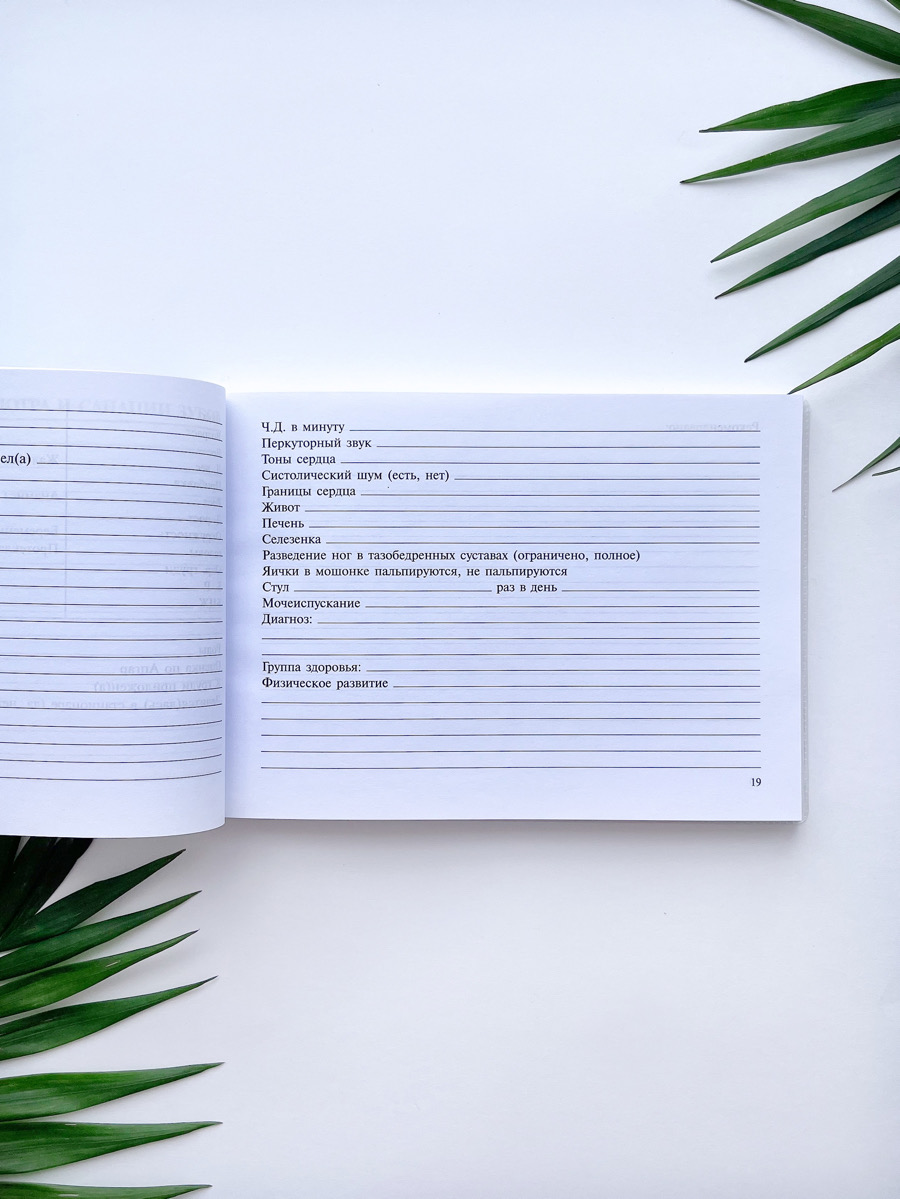 ел(а)
Ч.Д. в минуту
Перкуторный звук
Тоны сердца
Систолический шум (есть, нет)
Границы сердца
Живот
Печень
Селезенка
Разведение ног в тазобедренных суставах (ограничено, полное)
Яички в мошонке пальпируются, не пальпируются
Стул раз в день
Мочеиспускание
Диагноз:
Группа здоровья:
Физическое развитие
19